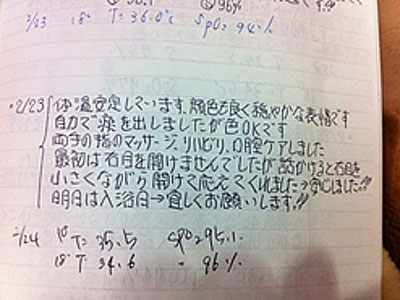 96%
2/23 18° T=36.0℃ SpO₂=94.%
・2/23 体温安定しています、顔色も良く穏やかな表情です
自力で痰を出しましたが色OKです
両手の指のマッサージ、リハビリ、口腔ケアしました
最初は右目を開けませんでしたが話かけると右目を
小さくながら開けて応えてくれました→安心しました!!!
明日は入浴日→宜しくお願いします!!!
2/24 10° T=35.5 SpO₂=95.%
18° T 34.6 〃 96%